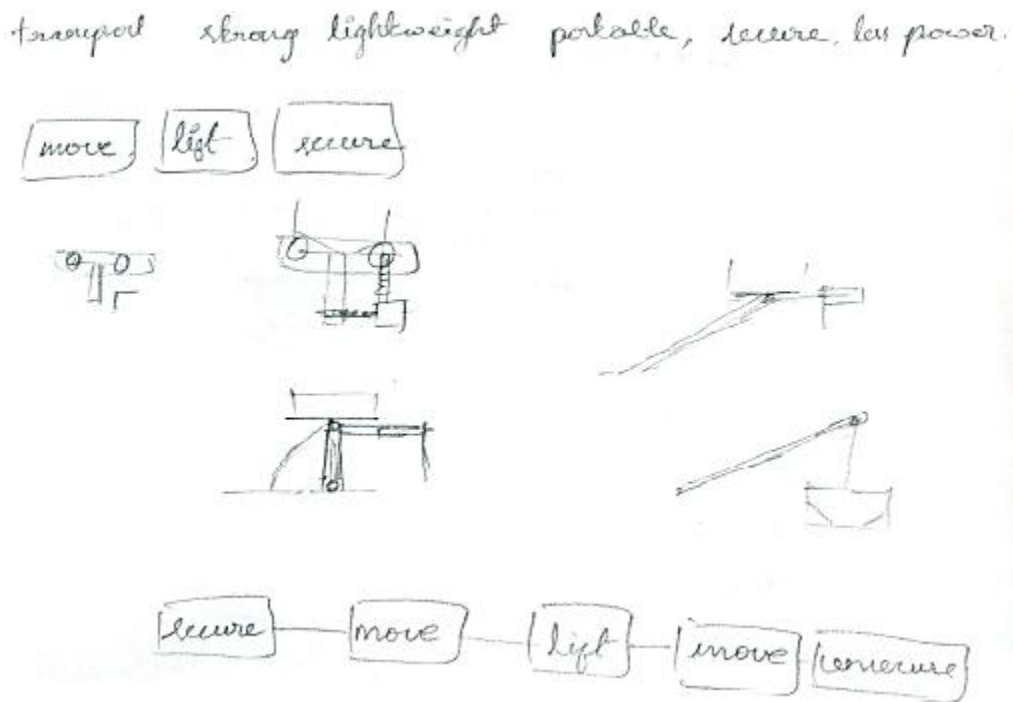 transport strong lightweight portable, secure, less power.
move lift secure
secure move lift move unsecure